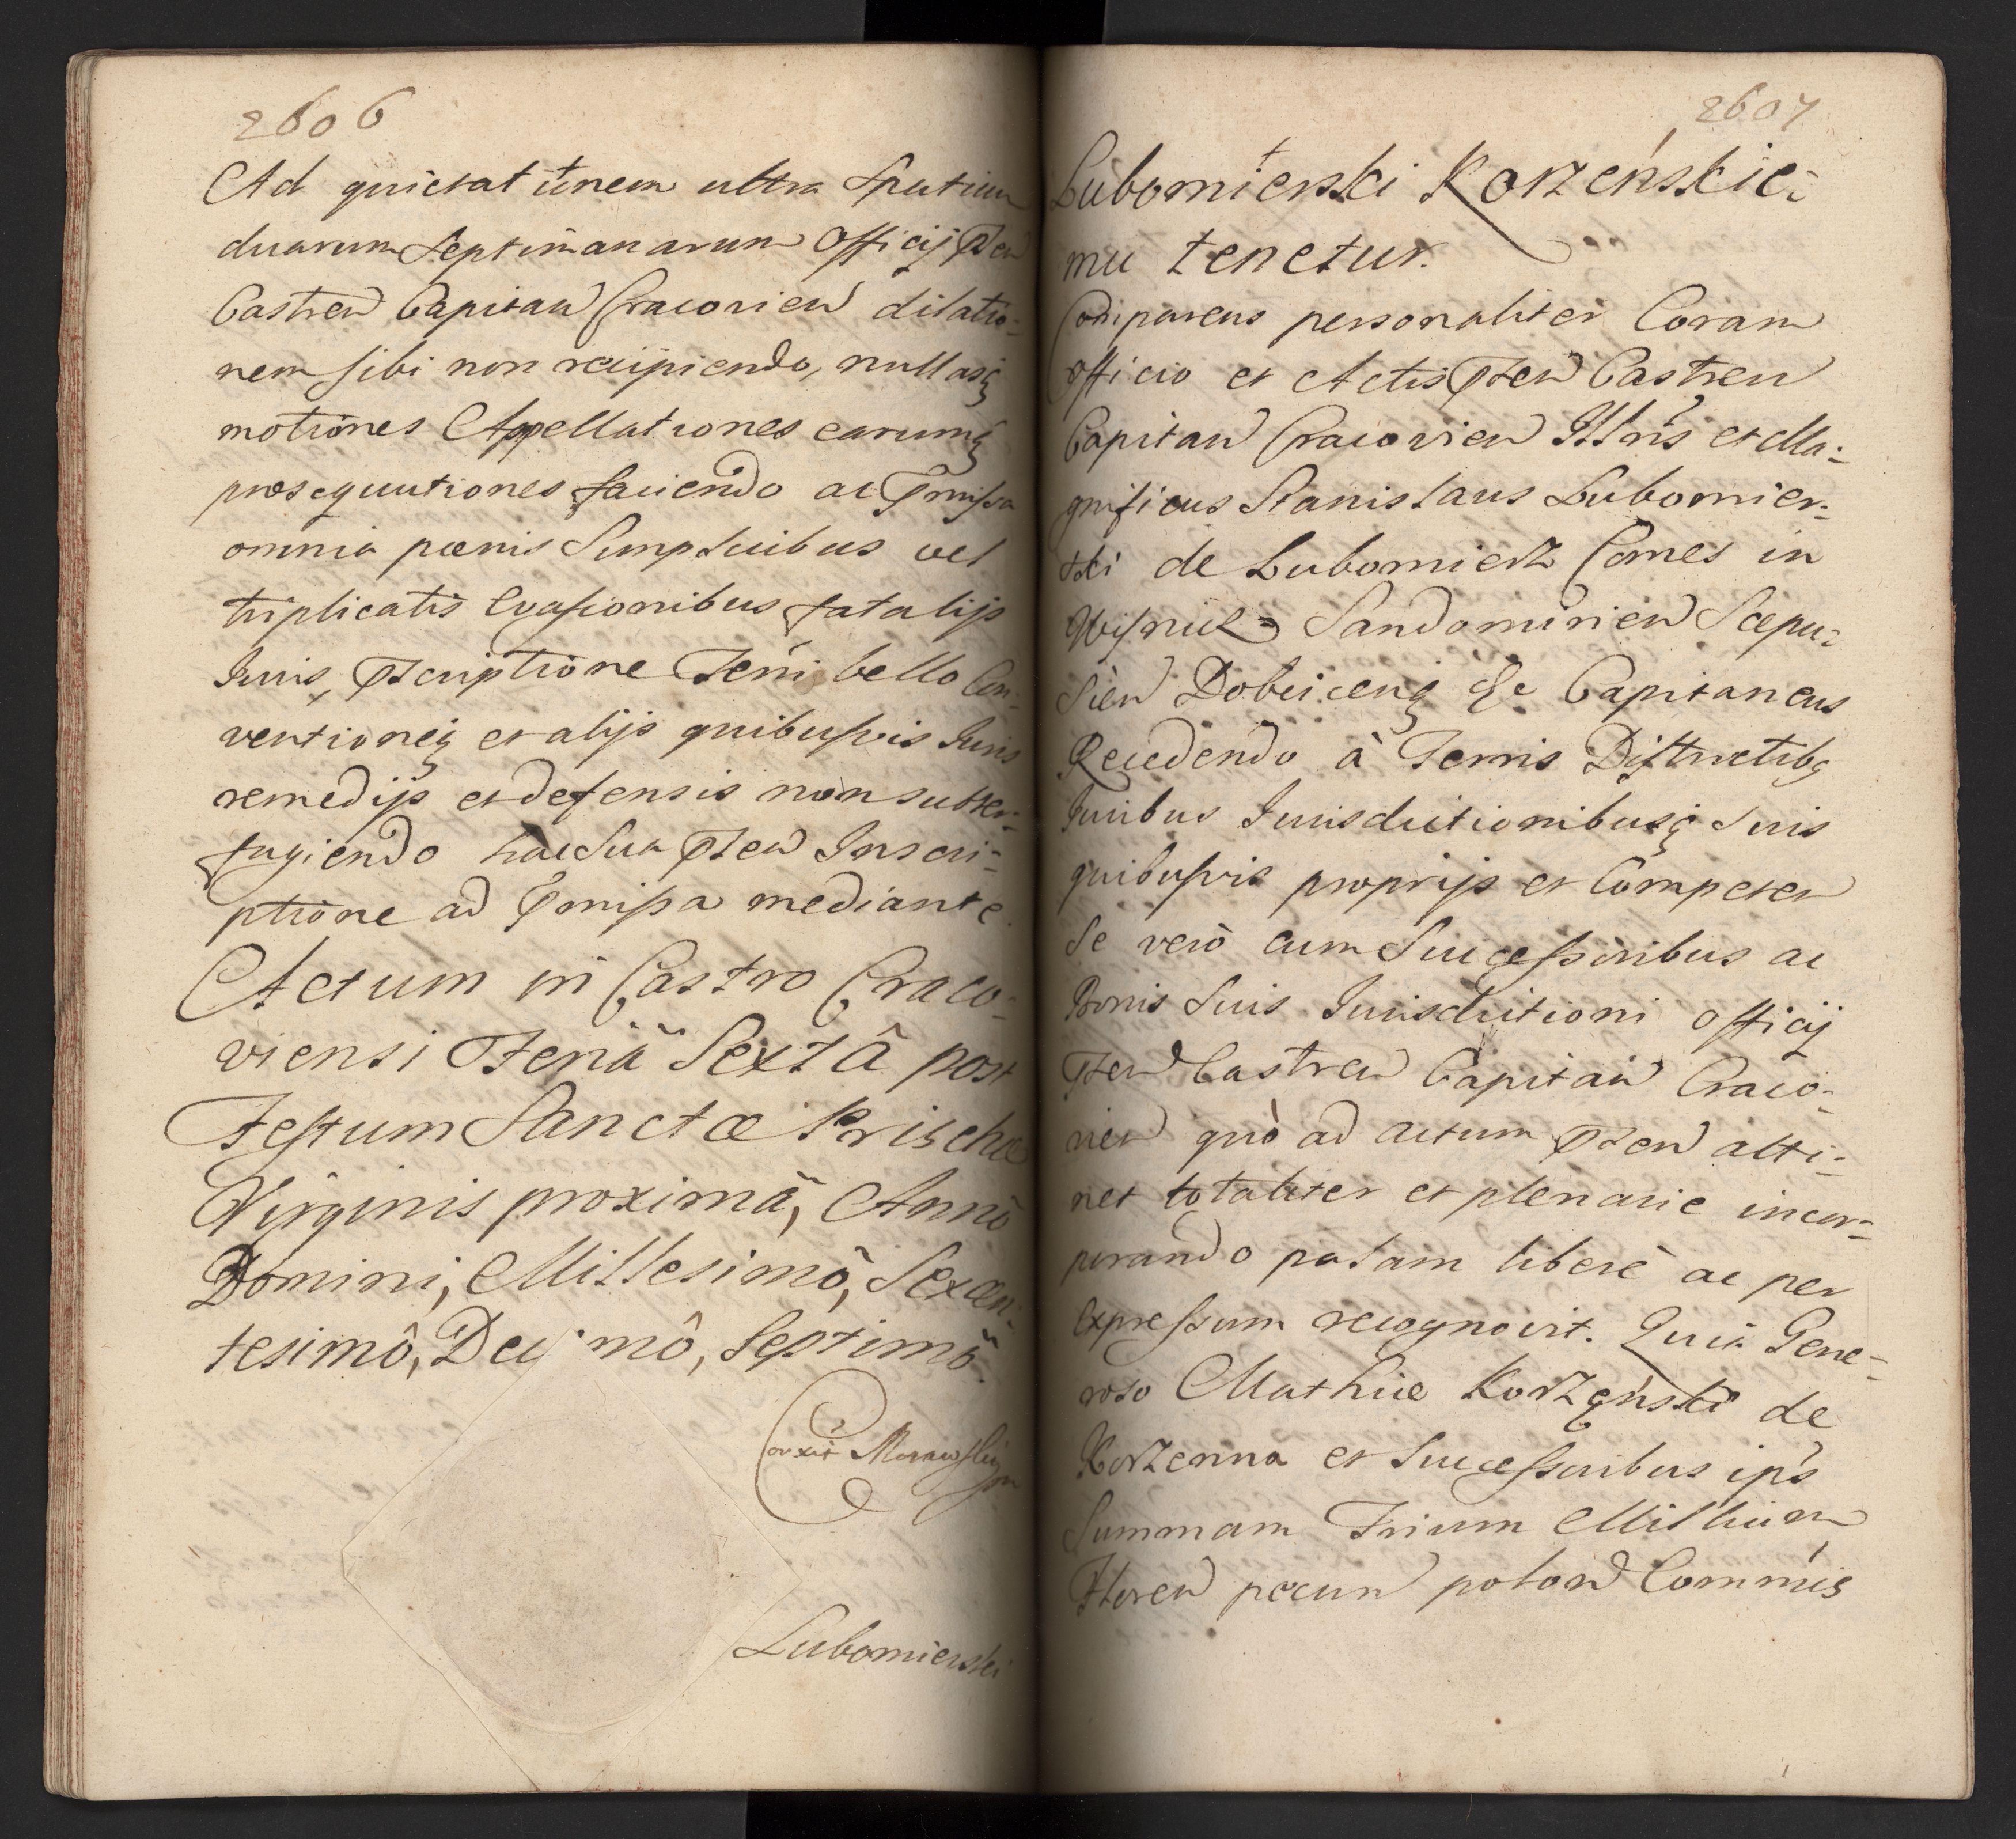 2606
Ad quietationem ultra spatium
duarum Septimanarum Officij pñten
Castren Capitan Cracovien dilatio-
nem sibi non recipiendo, nullasq
motiones Appellationes earumq
prosequutiones faciendo ac pmissa
omnia pœnis Simplicibus vel
triplicatis Evasionibus fatalijs
Juris, pscriptione Terrū bello Con-
ventioneq et alijs quibusvis Juris
remedijs et defensis non subter-
fugiendo hac Sua pñten Inscri-
ptione ad pmissa mediante.
Actum in Castro Craco-
viensi Feriâ Sextâ post
Festum Sanctæ Prischæ
Virginis proximâ, Annô
Domini, Millesimô, Sexcen-
tesimô, Decimô, Septimô.
Corxit Morawski
Lubomierski
2607
Lubomierski Korzeńskie-
mu tenetur.
Comparens personaliter Coram
officio et Actis pñten Castren
Capitan Cracovien Illris et Ma-
gnificus Stanislaus Lubomier-
ski de Lubomierz Comes in
Wisnicz Sandomirien Scepu-
sien Dobcicenq &c Capitaneus
Recedendo à Terris Districtibq
Juribus Jurisdictionibusq Suis
quibusvis proprijs et Competen
Se verò cum Successoribus ac
Bonis Suis Jurisdictioni officij
pñten Castren Capitan Craco-
vien quò ad actum pñten atti-
net totaliter et plenarie incor-
porando palam liberè ac per
expressum recognovit. Quia Gene-
roso Mathiæ Korzęński de
Korzenna et Successoribus ips
Summam Trium Millium
Floren pecun polon Commis